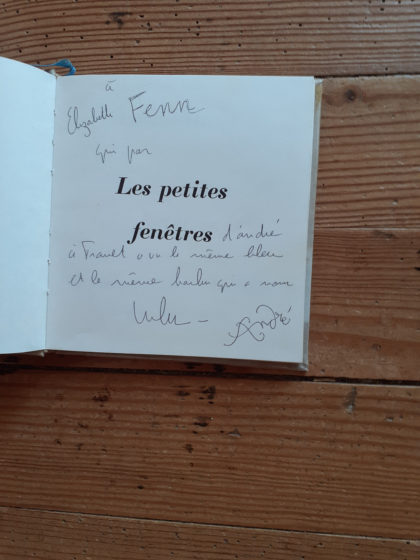 à
Elizabeth Fenn
qui par
Les petites
fenêtres d'andré
a vu le même bleu
et le même qui a nom
André